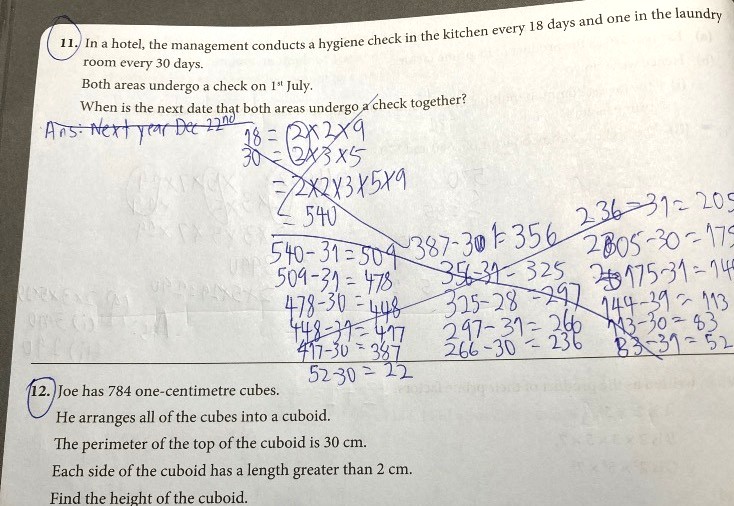 11. In a hotel, the management conducts a hygiene check in the kitchen every 18 days and one in the laundry
room every 30 days.
Both areas undergo a check on 1st July.
When is the next date that both areas undergo a check together?
Ans: Next year Dec 22nd
18 = 2×2×9
30 = 2×3×5
= 2×2×3×5×9
= 540
540-31=509
509-31=478
478-30=448
448-31=417
417-30=387
52-30=22
387-31=356
356-31=325
325-28=297
297-31=266
266-30=236
236-31=205
205-30=175
175-31=144
144-31=113
113-30=83
83-31=52
12. Joe has 784 one-centimetre cubes.
He arranges all of the cubes into a cuboid.
The perimeter of the top of the cuboid is 30 cm.
Each side of the cuboid has a length greater than 2 cm.
Find the height of the cuboid.